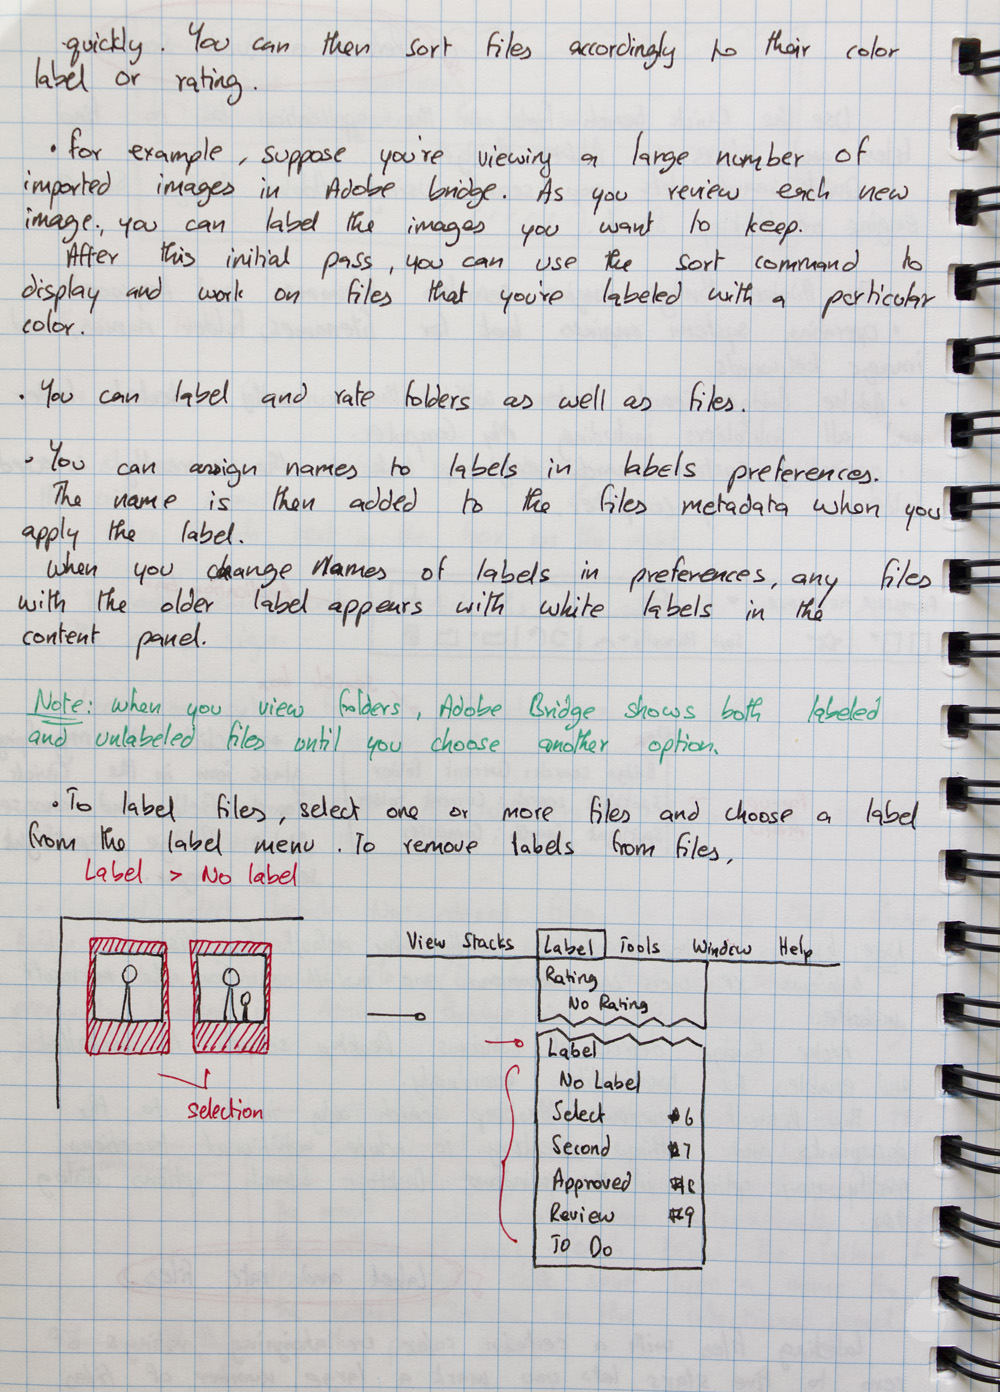 quickly. You can then sort files accordingly to their color
label or rating.
• For example, suppose you're viewing a large number of
imported images in Adobe bridge. As you review each new
image, you can label the images you want to keep.
After this initial pass, you can use the sort command to
display and work on files that you're labeled with a particular
color.
• You can label and rate folders as well as files.
• You can assign names to labels in labels preferences.
The name is then added to the files metadata when you
apply the label.
When you change Names of labels in preferences, any files
with the older label appears with white labels in the
content panel.
Note: when you view folders, Adobe Bridge shows both labeled
and unlabeled files until you choose another option.
• To label files, select one or more files and choose a label
from the label menu. To remove labels from files,
Label > No label
View Stacks Label Tools Window Help
Rating
No Rating
Label
No Label
Select #6
Second #7
Approved #8
Review #9
To Do
selection